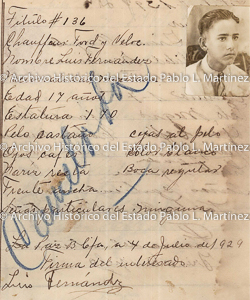 Título # 136
Chauffeur Ford y Veloc.
Nombre Luis Hernández
© Archivo Histórico del Estado Pablo L. Martínez
Edad 17 años
Estatura 1.70
Pelo castaño cejas al pelo
Ojos café Color blanco
© Archivo Histórico del Estado Pablo L. Martínez
Nariz recta Boca regular
Frente ancha
Señas particulares ningunas
© Archivo Histórico del Estado Pablo L. Martínez
La Paz B. Cfa, a 4 de Julio de 1929
Firma del interesado
Luis Hernández
Cancelada